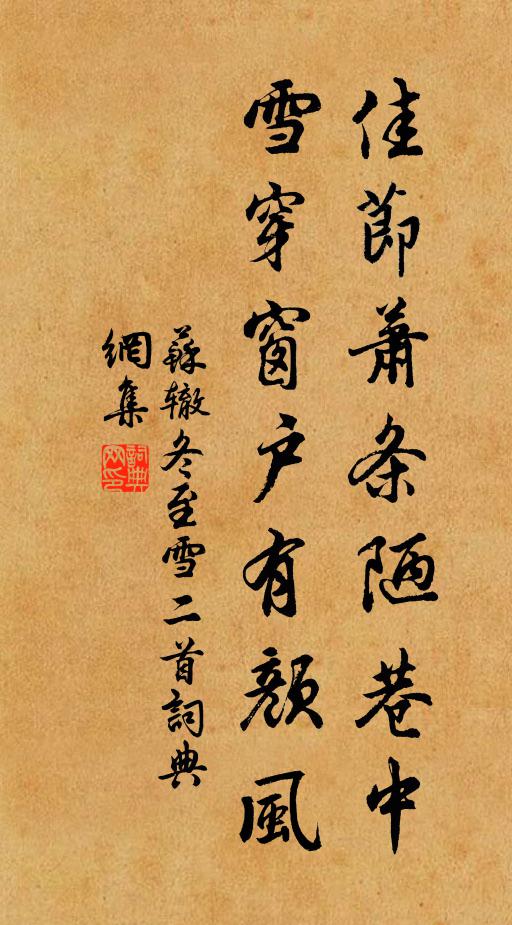 佳節蕭条陋巷中
雪穿窗户有顏風
蘇辙冬至雪二首詞典
網集
詞典
网印